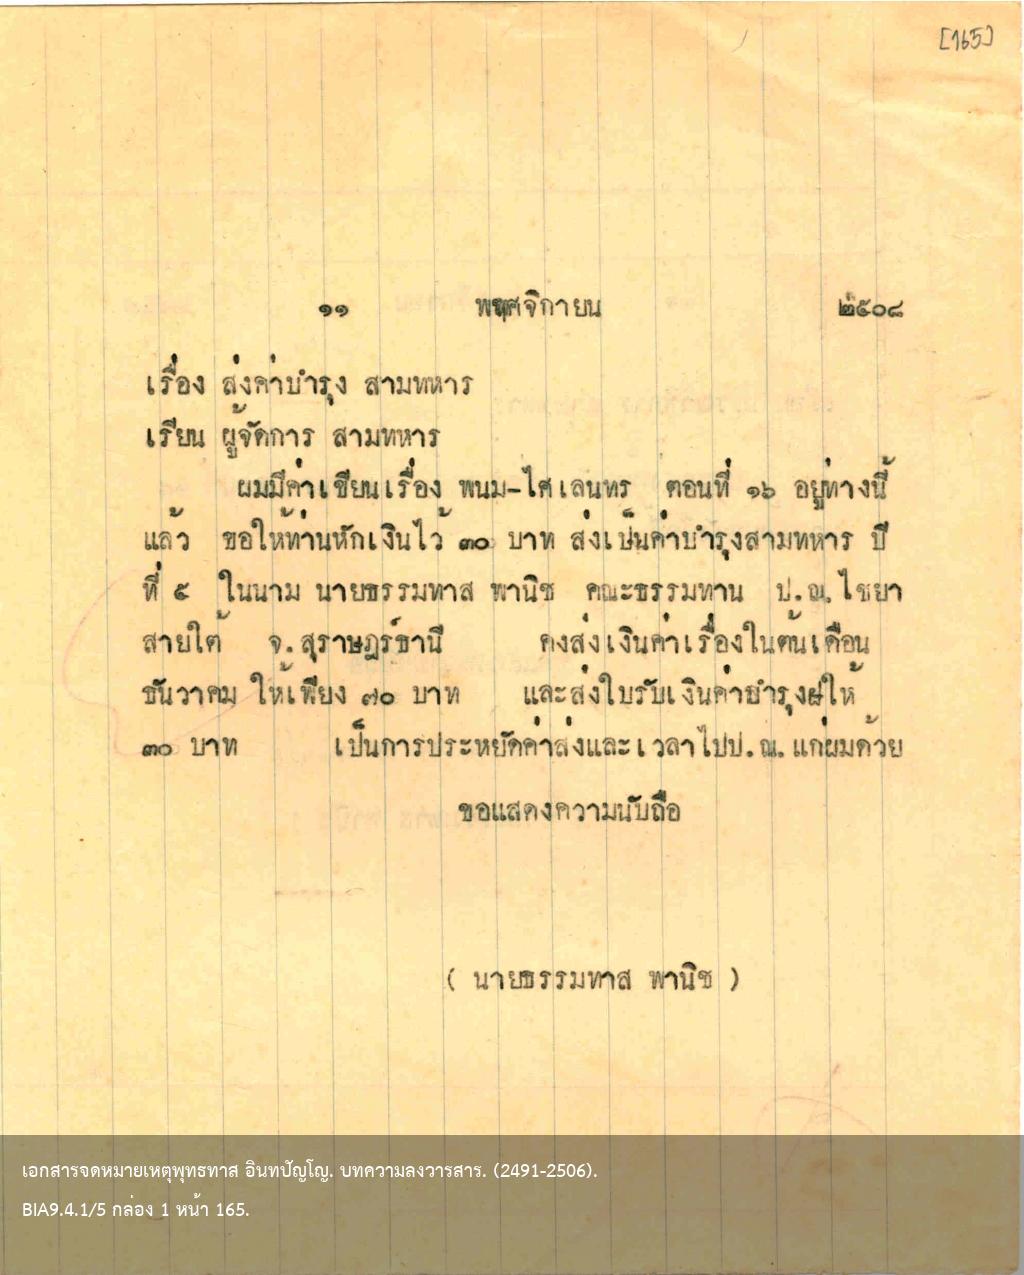 [165]
๑๑ พฤศจิกายน ๒๕๐๘
เรื่อง ส่งค่าบำรุง สามทหาร
เรียน ผู้จัดการ สามทหาร
ผมมีค่าเขียนเรื่อง พนม-ไศเลนทร ตอนที่ ๑๖ อยู่ทางนี้
แล้ว ขอให้ท่านหักเงินไว้ ๓๐ บาท ส่งเป็นค่าบำรุงสามทหาร ปี
ที่ ๕ ในนาม นายธรรมทาส พานิช คณะธรรมทาน ป.ณ.ไชยา
สายใต้ จ.สุราษฎร์ธานี คงส่งเงินค่าเรื่องในต้นเดือน
ธันวาคม ให้เพียง ๗๐ บาท และส่งใบรับเงินค่าบำรุงให้
๓๐ บาท เป็นการประหยัดค่าส่งและเวลาไปป.ณ.แก่ผมด้วย
ขอแสดงความนับถือ
( นายธรรมทาส พานิช )
เอกสารจดหมายเหตุพุทธทาส อินทปัญโญ. บทความลงวารสาร. (2491-2506).
BIA9.4.1/5 กล่อง 1 หน้า 165.